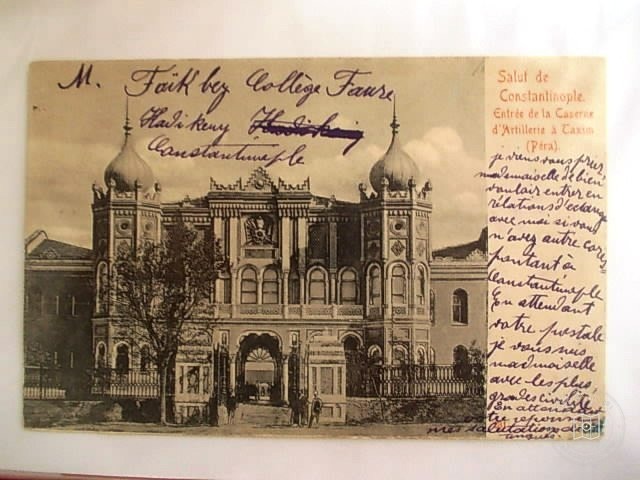 M. Faïk bey Collège Faure
Hadikeuy Hadikeuy
Constantinople
Salut de
Constantinople.
Entrée de la Caserne
d'Artillerie à Taxim
(Péra).
je viens vous prier
mademoiselle de bien
vouloir entrer en
rélations d'echange
avec moi si vous
n'avez autre corres
pondant à
Constantinople
En attendant
votre postale
je vous
mademoiselle
avec les plus
grandes civilités
En attendant
votre reponse
mes salutations